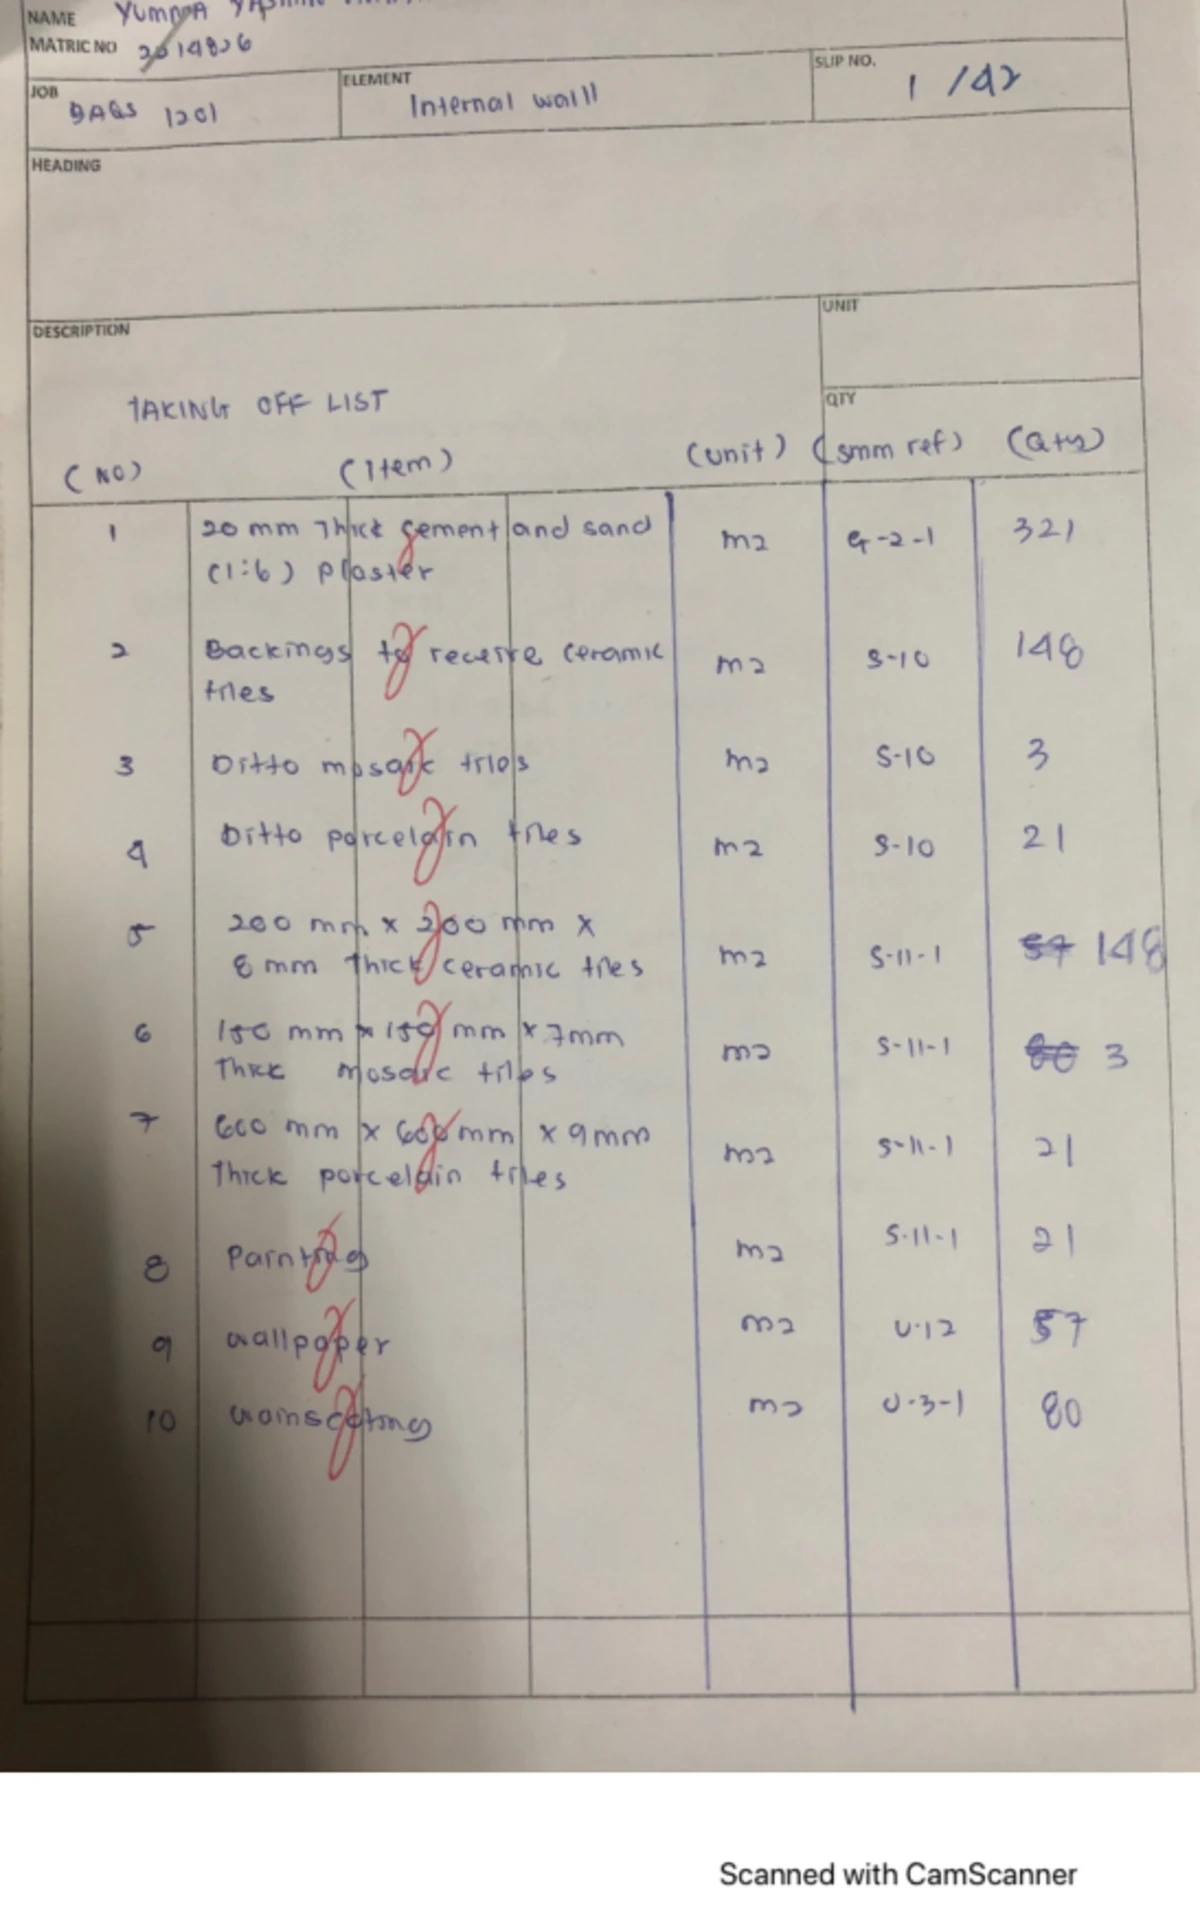 NAME YUMNA
MATRIC NO 2014826
JOB
BAQS 1201
ELEMENT
Internal wall
SLIP NO.
1 / 42
HEADING
DESCRIPTION
UNIT
QTY
TAKING OFF LIST
(NO) (Item) (unit) (smm ref) (Qty)
1 20 mm Thick cement and sand m2 G-2-1 321
(1:6) plaster
2 Backings to receive ceramic m2 S-10 148
tiles
3 Ditto mosaic tiles m2 S-10 3
4 Ditto porcelain tiles m2 S-10 21
5 200 mm x 200 mm x
8 mm thick ceramic tiles m2 S-11-1 57 148
6 150 mm x 150 mm x 7mm m2 S-11-1 80 3
Thick mosaic tiles
7 600 mm x 600 mm x 9mm m2 S-11-1 21
Thick porcelain tiles
8 Painting m2 S-11-1 21
9 wallpaper m2 U-12 57
10 wainscoting m2 U-3-1 80
Scanned with CamScanner